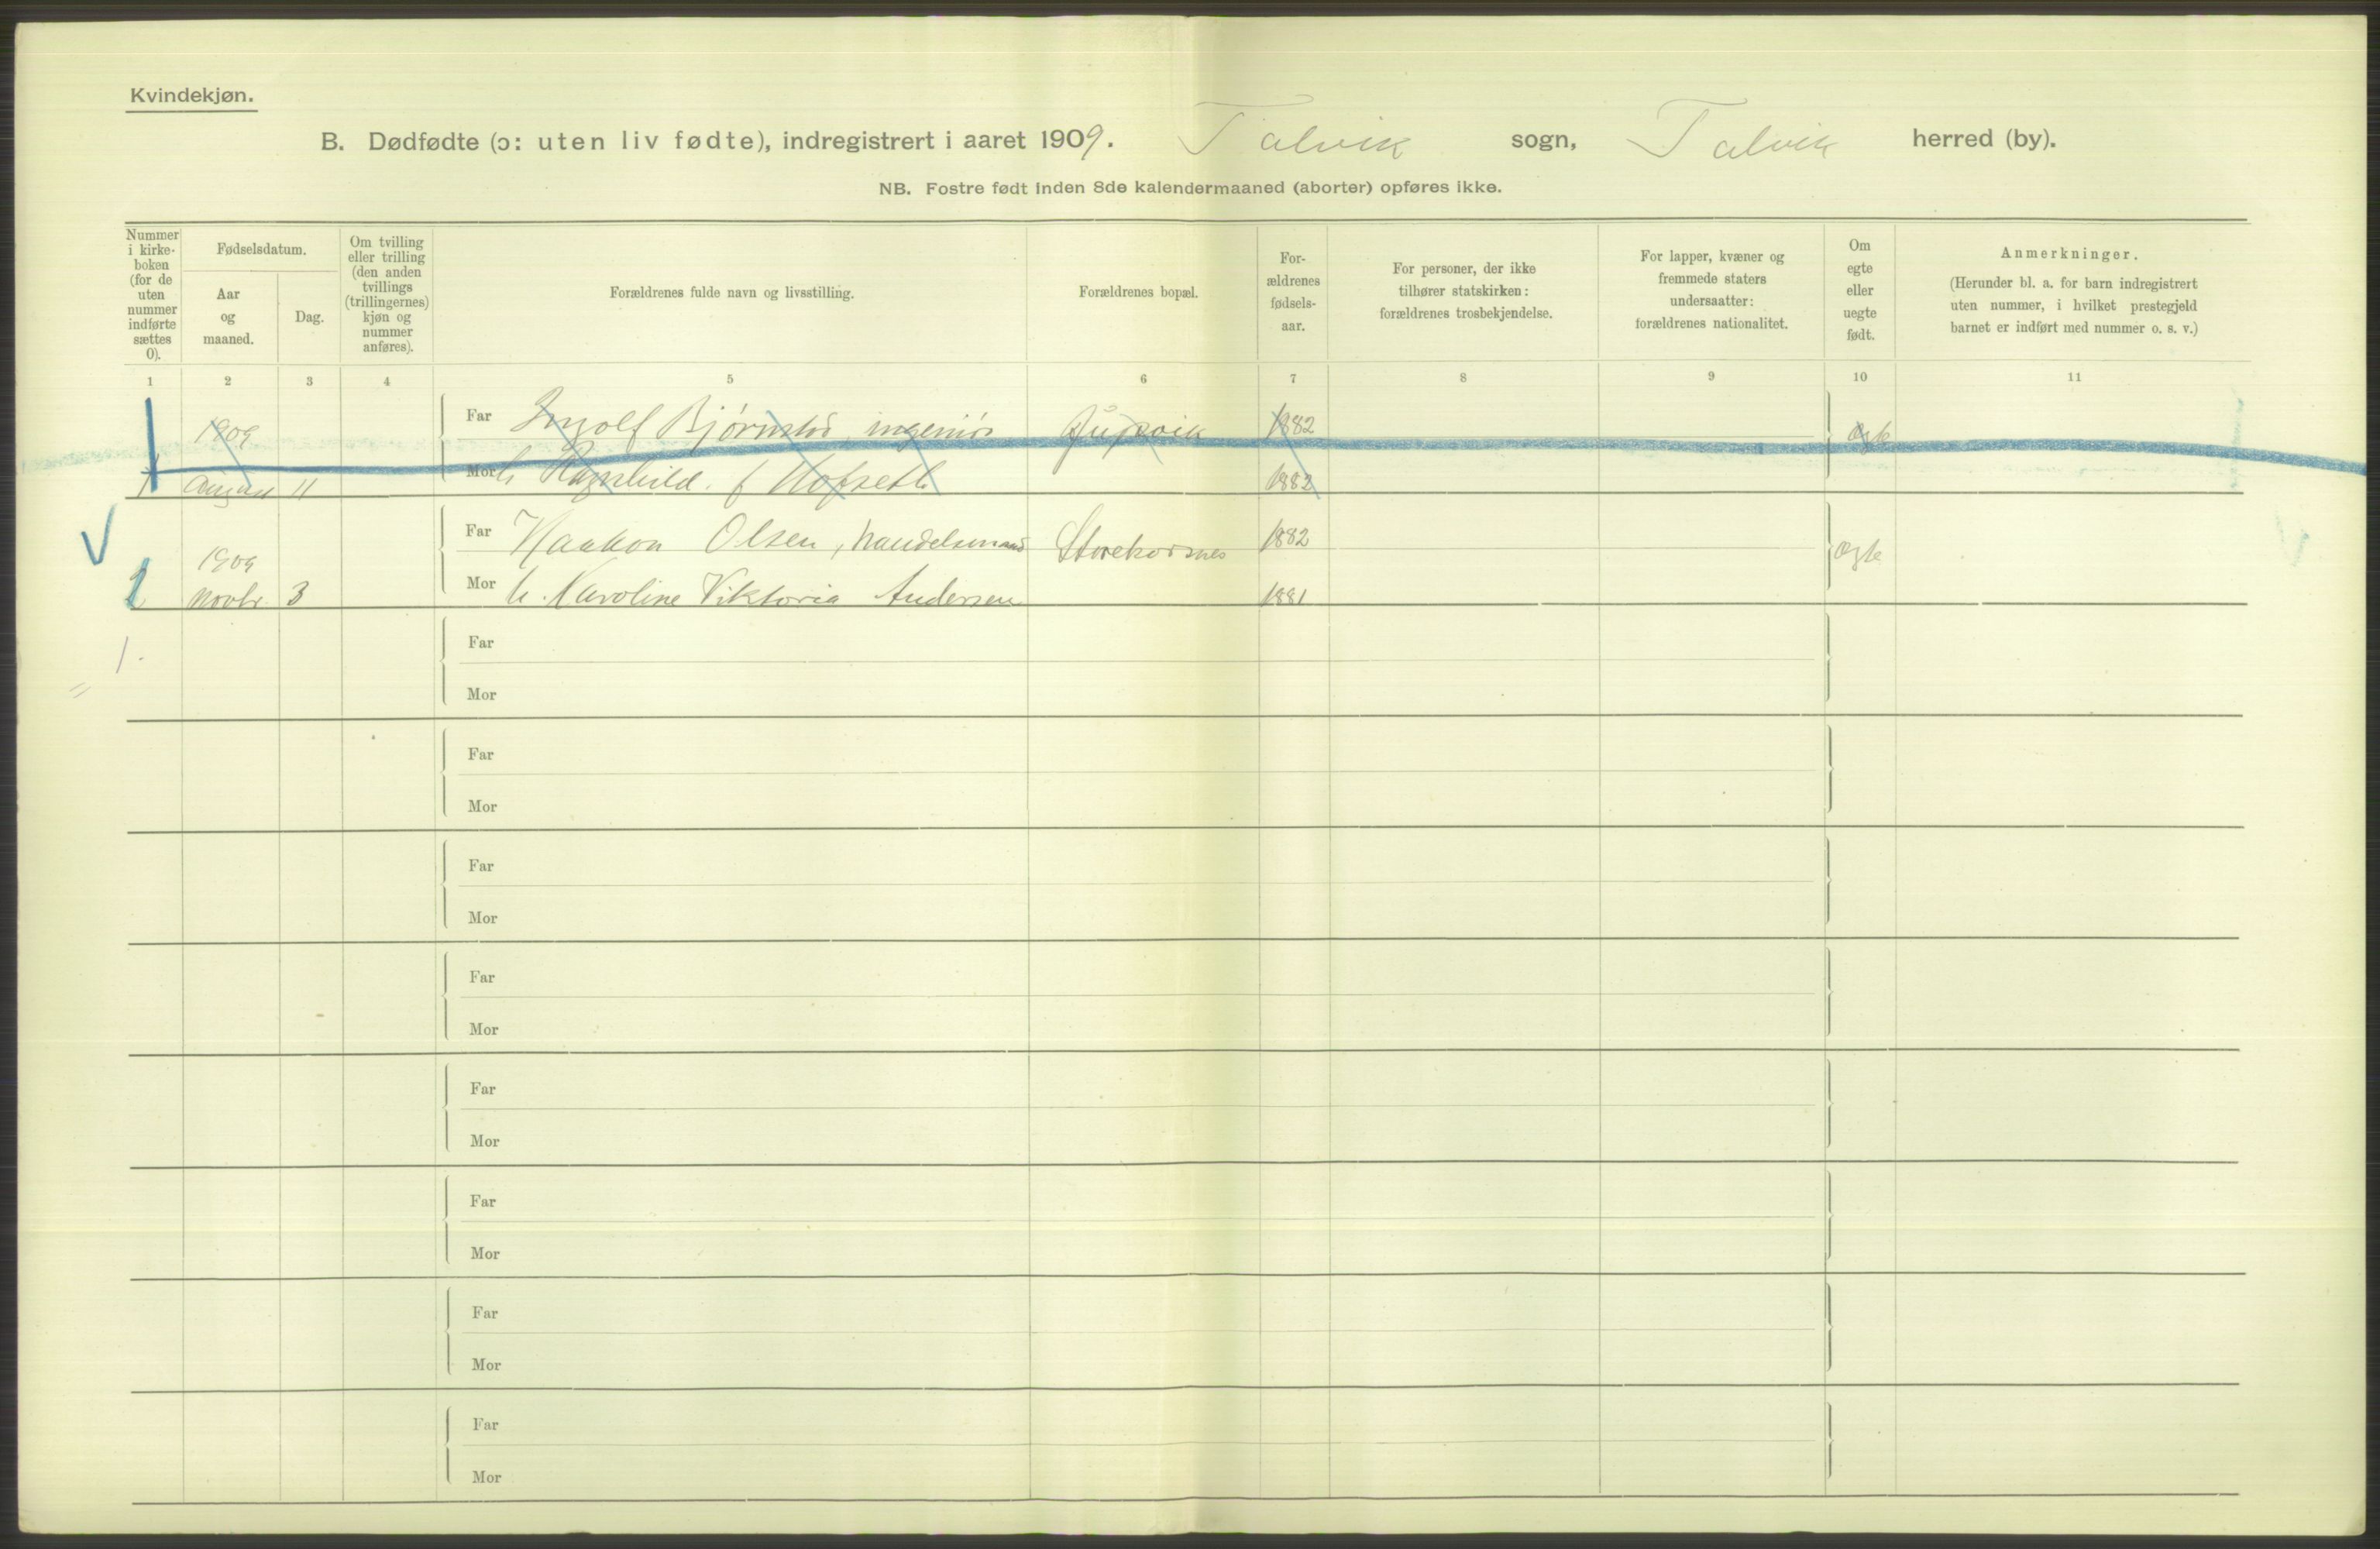 Kvindekjøn.
B. Dødfødte (ɔ: uten liv fødte), indregistrert i aaret 1909. Talvik sogn, Talvik herred (by).
NB. Fostre født inden 8de kalendermaaned (aborter) opføres ikke.
Nummer i kirke- boken (for de uten nummer indførte sættes 0).
Fødselsdatum.
Aar og maaned.
Dag.
Om tvilling eller trilling (den anden tvillings (trillingernes) kjøn og nummer anføres).
Forældrenes fulde navn og livsstilling.
Forældrenes bopæl.
For- ældrenes fødsels- aar.
For personer, der ikke tilhører statskirken: forældrenes trosbekjendelse.
For lapper, kvæner og fremmede staters undersaatter: forældrenes nationalitet.
Om egte eller uegte født.
Anmerkninger.
(Herunder bl. a. for barn indregistrert uten nummer, i hvilket prestegjeld barnet er indført med nummer o. s. v.)
1 2 3 4 5 6 7 8 9 10 11
1909 Far Ingolf Bjørnstad, ingeniør 1882 ægte
1 August 11 Mor h. Ragnhild f Hofseth 1882
1909 Far Haakon Olsen, handelsmand Storekorsnes 1882 ægte
2 Novbr. 3 Mor h. Karoline Viktoria Andersen 1881
1.
Far
Mor
Far
Mor
Far
Mor
Far
Mor
Far
Mor
Far
Mor
Far
Mor
Far
Mor